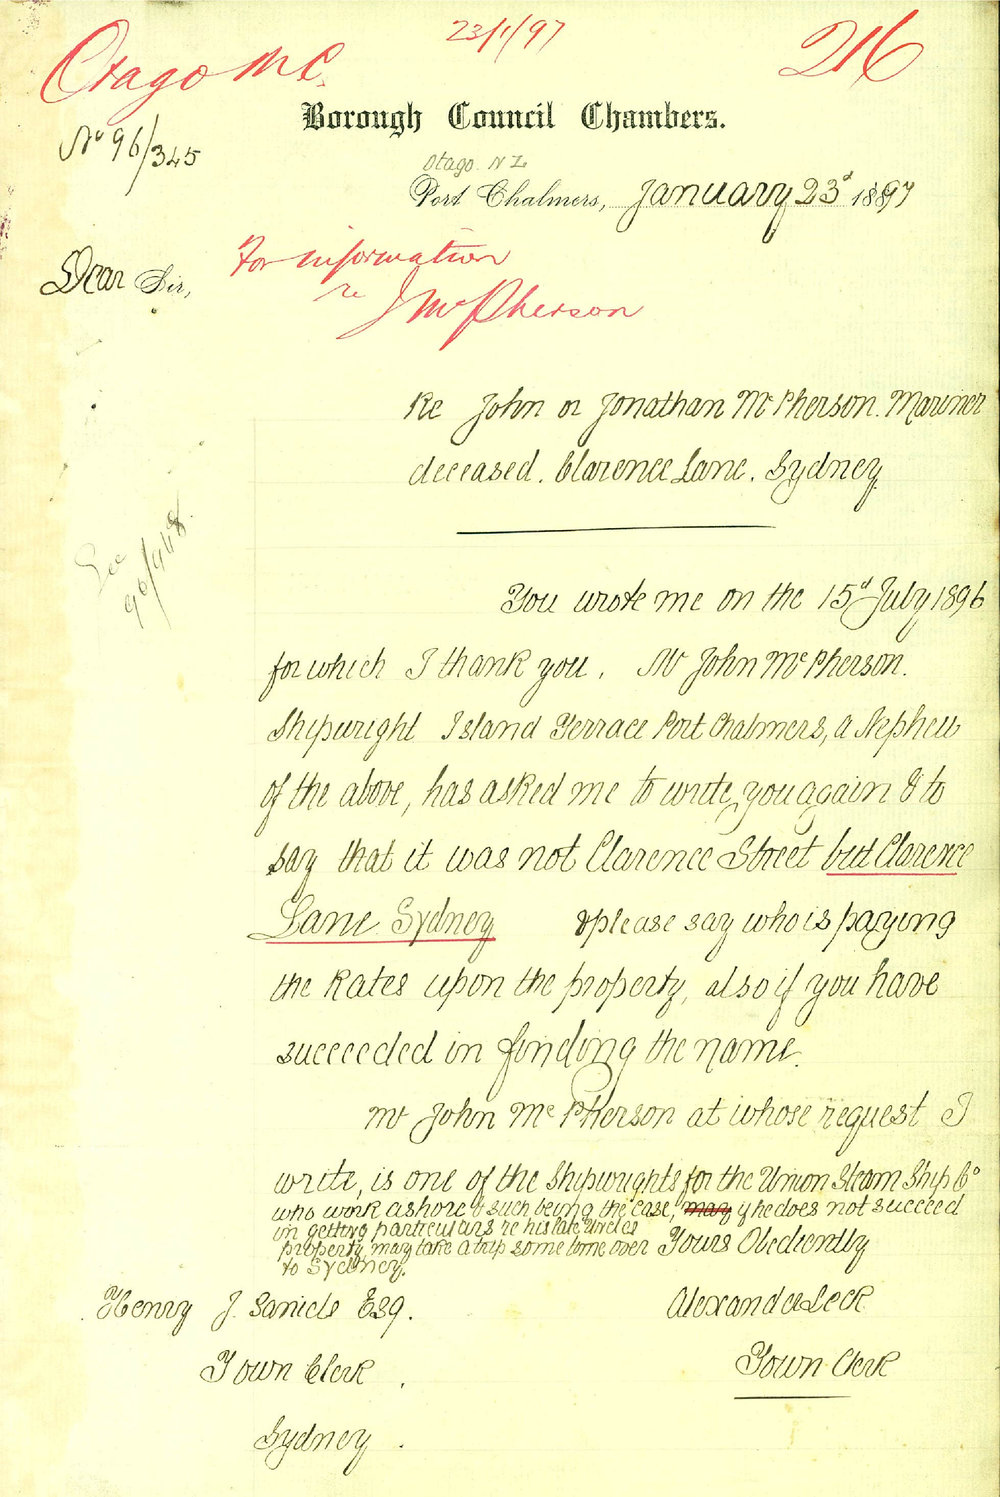 Otago M.C.
23/1/97
216
Borough Council Chambers.
No 96/345
Otago N Z
Port Chalmers, January 23d 1897
Dear Sir,
For information
re J McPherson
Re John or Jonathan McPherson. Mariner
deceased. Clarence Lane. Sydney
See
96/968
You wrote me on the 15d July 1896
for which I thank you. Mr John McPherson.
Shipwright Island Terrace Port Chalmers, a Nephew
of the above, has asked me to write you again & to
say that it was not Clarence Street but Clarence
Lane Sydney & please say who is paying
the Rates upon the property, also if you have
succeeded in finding the name.
Mr John McPherson at whose request I
write, is one of the Shipwrights for the Union Steam Ship Co
who work ashore & such being the case, may if he does not succeed
in getting particulars re his late Uncles
property, may take a trip some time over
to Sydney.
Yours Obediently
Henry J. Daniels Esq.
Town Clerk
Sydney.
Town Clerk